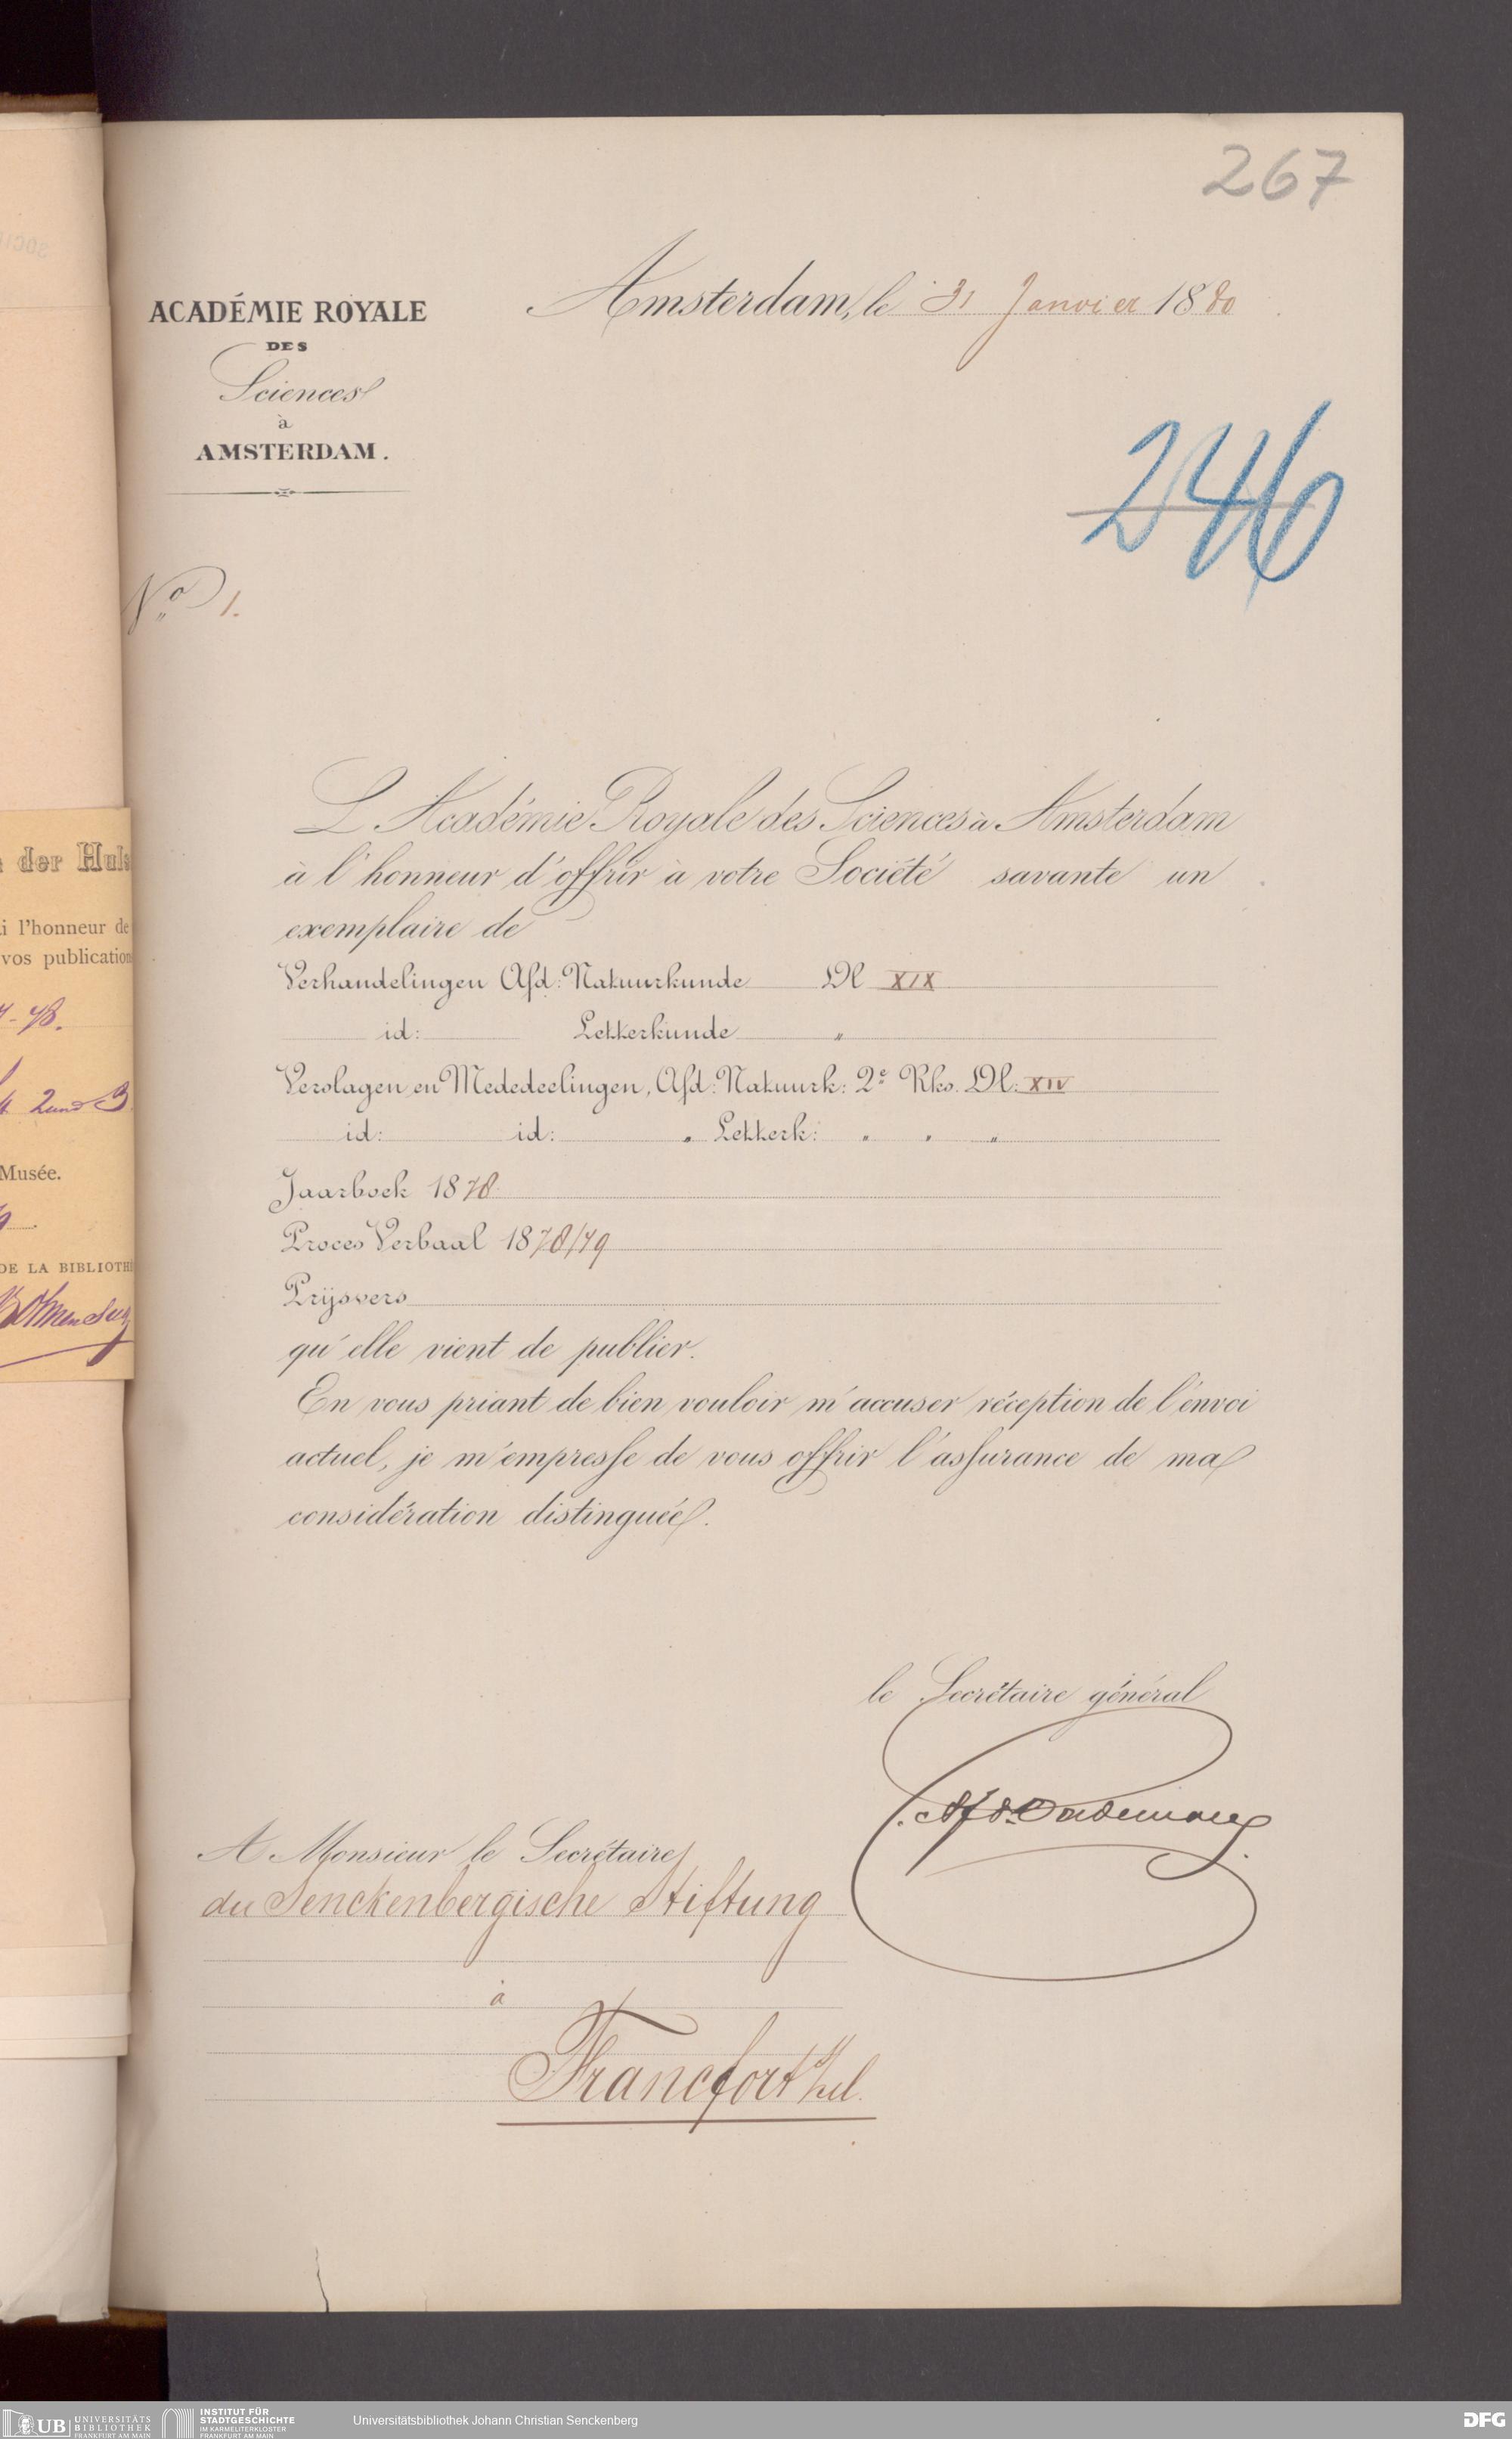 267
ACADÉMIE ROYALE
DES
Sciences
à
AMSTERDAM.
Amsterdam, le 31 Janvier 1880
246
No 1.
L'Académie Royale des Sciences à Amsterdam
à l'honneur d'offrir à votre Société savante un
exemplaire de
Verhandelingen Afd: Natuurkunde Dl XIX
id: Letterkunde "
Verslagen en Mededeelingen, Afd: Natuurk: 2e Rks. Dl. XIV
id: id: " Letterk: " " "
Jaarboek 1878.
Proces Verbaal 1878/79
Prijsvers
qu'elle vient de publier.
En vous priant de bien vouloir m'accuser réception de l'énvoi
actuel, je m'empresse de vous offrir l'assurance de ma
considération distinguée.
le Secrétaire général
Oudemans
A Monsieur le Secrétaire
du Senckenbergische Stiftung
à
Francfort
der Huls
i l'honneur de
vos publication
78.
2 und 3
Musée.
DE LA BIBLIOTH
UB UNIVERSITÄTS
BIBLIOTHEK
FRANKFURT AM MAIN
INSTITUT FÜR
STADTGESCHICHTE
IM KARMELITERKLOSTER
FRANKFURT AM MAIN
Universitätsbibliothek Johann Christian Senckenberg
DFG